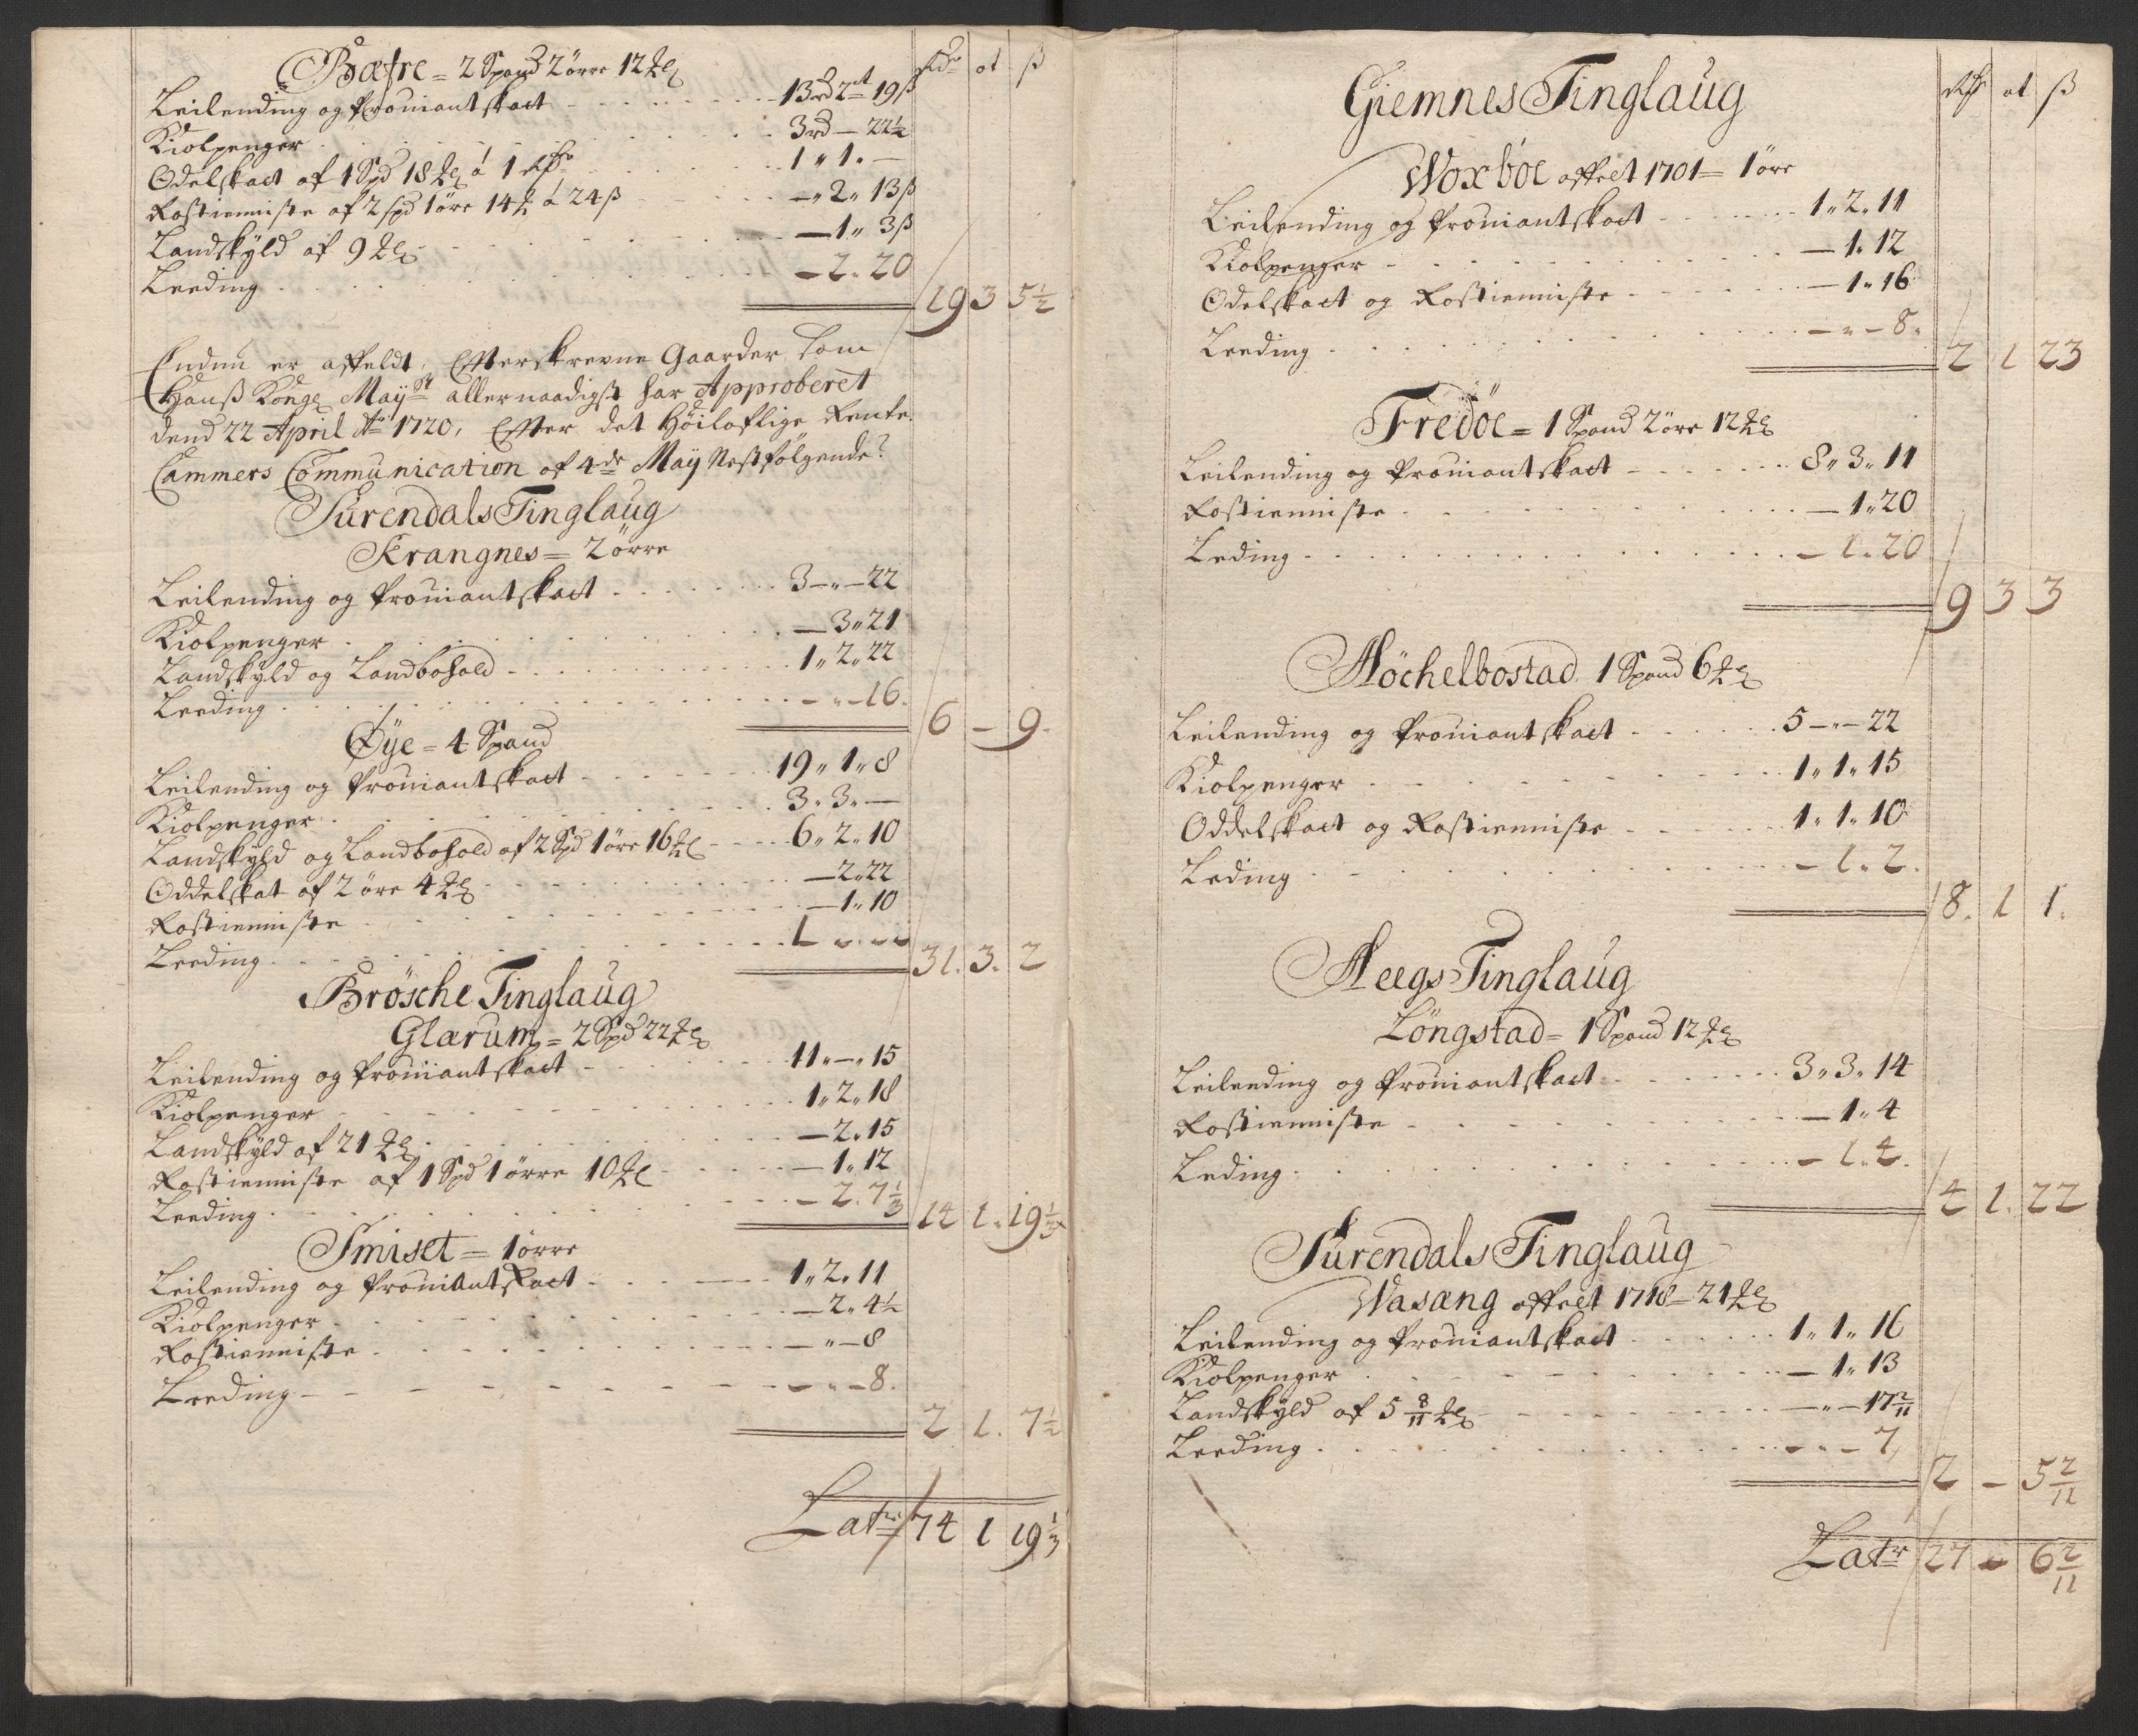 Bæfre = 2 Spand 2 örre 12 
Rdr ot ß
Leilending og Prouiantskatt 13rd 2ort 19ß
Kiolpenger 3rd — 22½
Odelskatt af 1 Spd 18 á 1 1 „ 1 . —
Rostienniste af 2 spd 1 öre 14 á 24ß — „ 2 „ 13ß
Landskyld af 9 — 1 „ 3ß
Leeding — 2 . 20
19 3 5½
Endnu er affeldt, Efterskrevne Gaarder som
Hanß Konge Mayst allernaadigst har Approberet
dend 22 April Ao 1720, Efter det Höiloflige Rente
Cammers Communication af 4de Maÿ Nestfölgende?
Surendals Tinglaug
Krangnes = 2 örre
Leilending og Prouiantskatt 3 — „ — 22
Kiolpenger — 3 „ 21
Landskyld og Landbohold 1 „ 2 „ 22
Leeding — „ — 16.
6 — 9.
Øye = 4 Spand
Leilending og Prouiantskatt 19 „ 1 „ 8
Kiolpenger 3 „ 3 „ —
Landskyld og Landbohold af 2 Spd 1 öre 16 6 „ 2 „ 10
Oddelskat af 2 öre 4 — 2 „ 22
Rostienniste — 1 „ 10
Leeding 1 „ — „ —
31. 3. 2
Brösche Tinglaug
Glærum = 2 Spd 22
Leilending og Prouiantskatt 11 „ — „ 15
Kiolpenger 1 „ 2 „ 18
Landskyld af 21 — 2 „ 15
Rostienniste af 1 Spd 1 örre 10 — 1 „ 12
Leeding — 2. 7⅓
14 1. 19⅓
Smiset = 1 örre
Leilending og Prouiantskatt 1 „ 2 „ 11
Kiolpenger — 2 „ 4½
Rostienniste — „ — 8
Leeding — „ — 8.
2 1. 7½
Latr 74 1 19⅓
Giemnes Tinglaug
Rdr ot ß
Woxböe affelt 1701 = 1 öre
Leilending og Prouiantskatt 1 „ 2 „ 11
Kiolpenger — 1 „ 12
Odelskatt og Rostienniste — 1 „ 16
Leeding — „ — 8 „
2 1 23
Fredöe = 1 Spand 2 öre 12
Leilending og Prouiantskatt 8 „ 3 „ 11
Rostienniste — 1 „ 20
Leding — 1 „ 20
9 3 3
Höchelbostad 1 Spand 6
Leilending og Prouiantskatt 5 — „ — 22
Kiolpenger 1 „ 1 „ 15
Oddelskatt og Rostienniste 1 „ 1 „ 10
Leding — 1 „ 2.
8. 1 1.
Aeegs Tinglaug
Löngstad = 1 Spand 12
Leilending og Prouiantskatt 3 „ 3 „ 14
Rostienniste — 1 „ 4
Leding — 1 . 4.
4 1. 22
Surendals Tinglaug
Wasang affelt 1718 = 21
Leilending og Prouiantskatt 1 „ 1 „ 16
Kiolpenger — 1 „ 13
Landskyld af 5 8/11 — „ — 17 2/11
Leeding — „ — 7
2 — 5 2/11
Latr 27 — 6 2/11